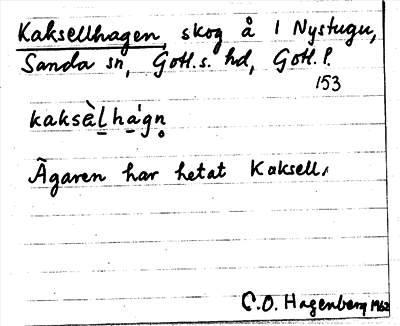 Kaksellhagen, skog å 1 Nystugu,
Sanda sn, Gotl.s. hd, Gotl. l.
153
kaksèl̠há̠gn̥
Ägaren har hetat Kaksell.
C.O. Hagenberg 1962